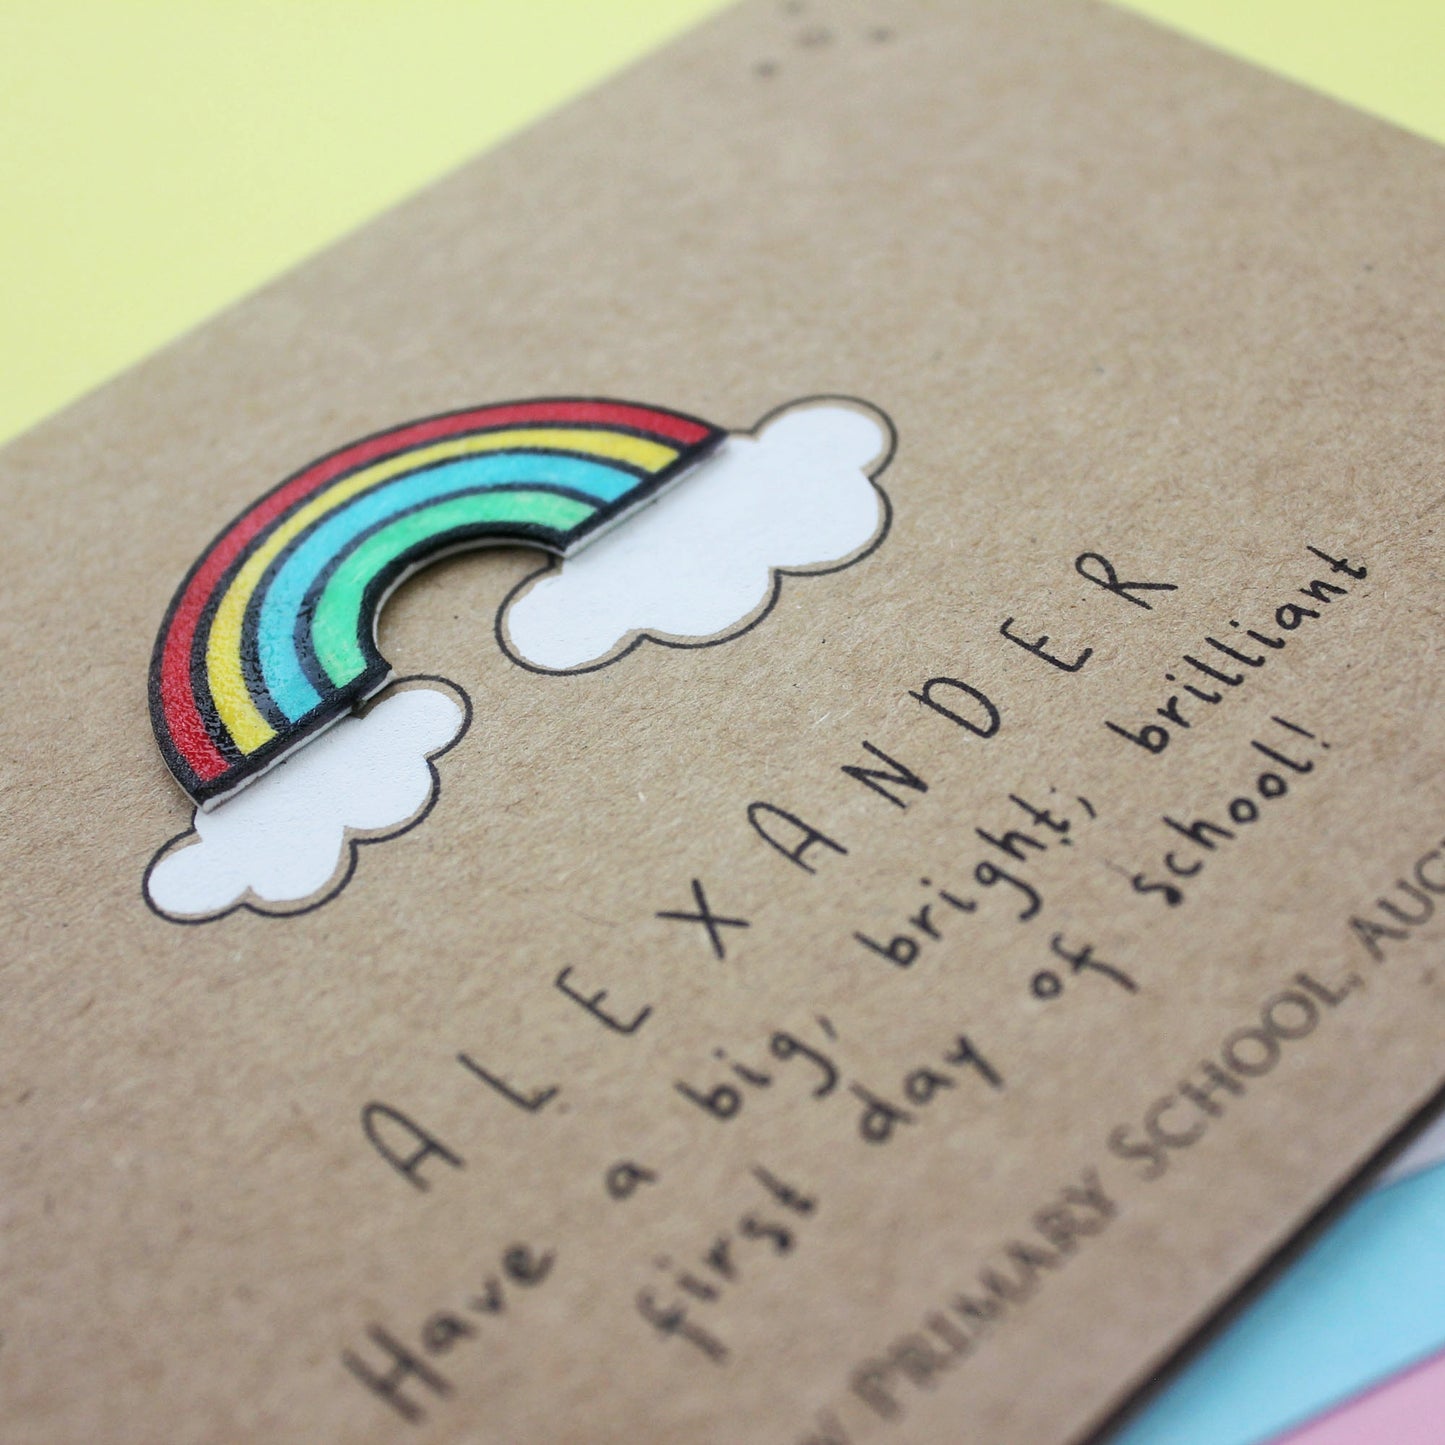 ALEXANDER
Have a big, bright, brilliant
first day of school!
PRIMARY SCHOOL,